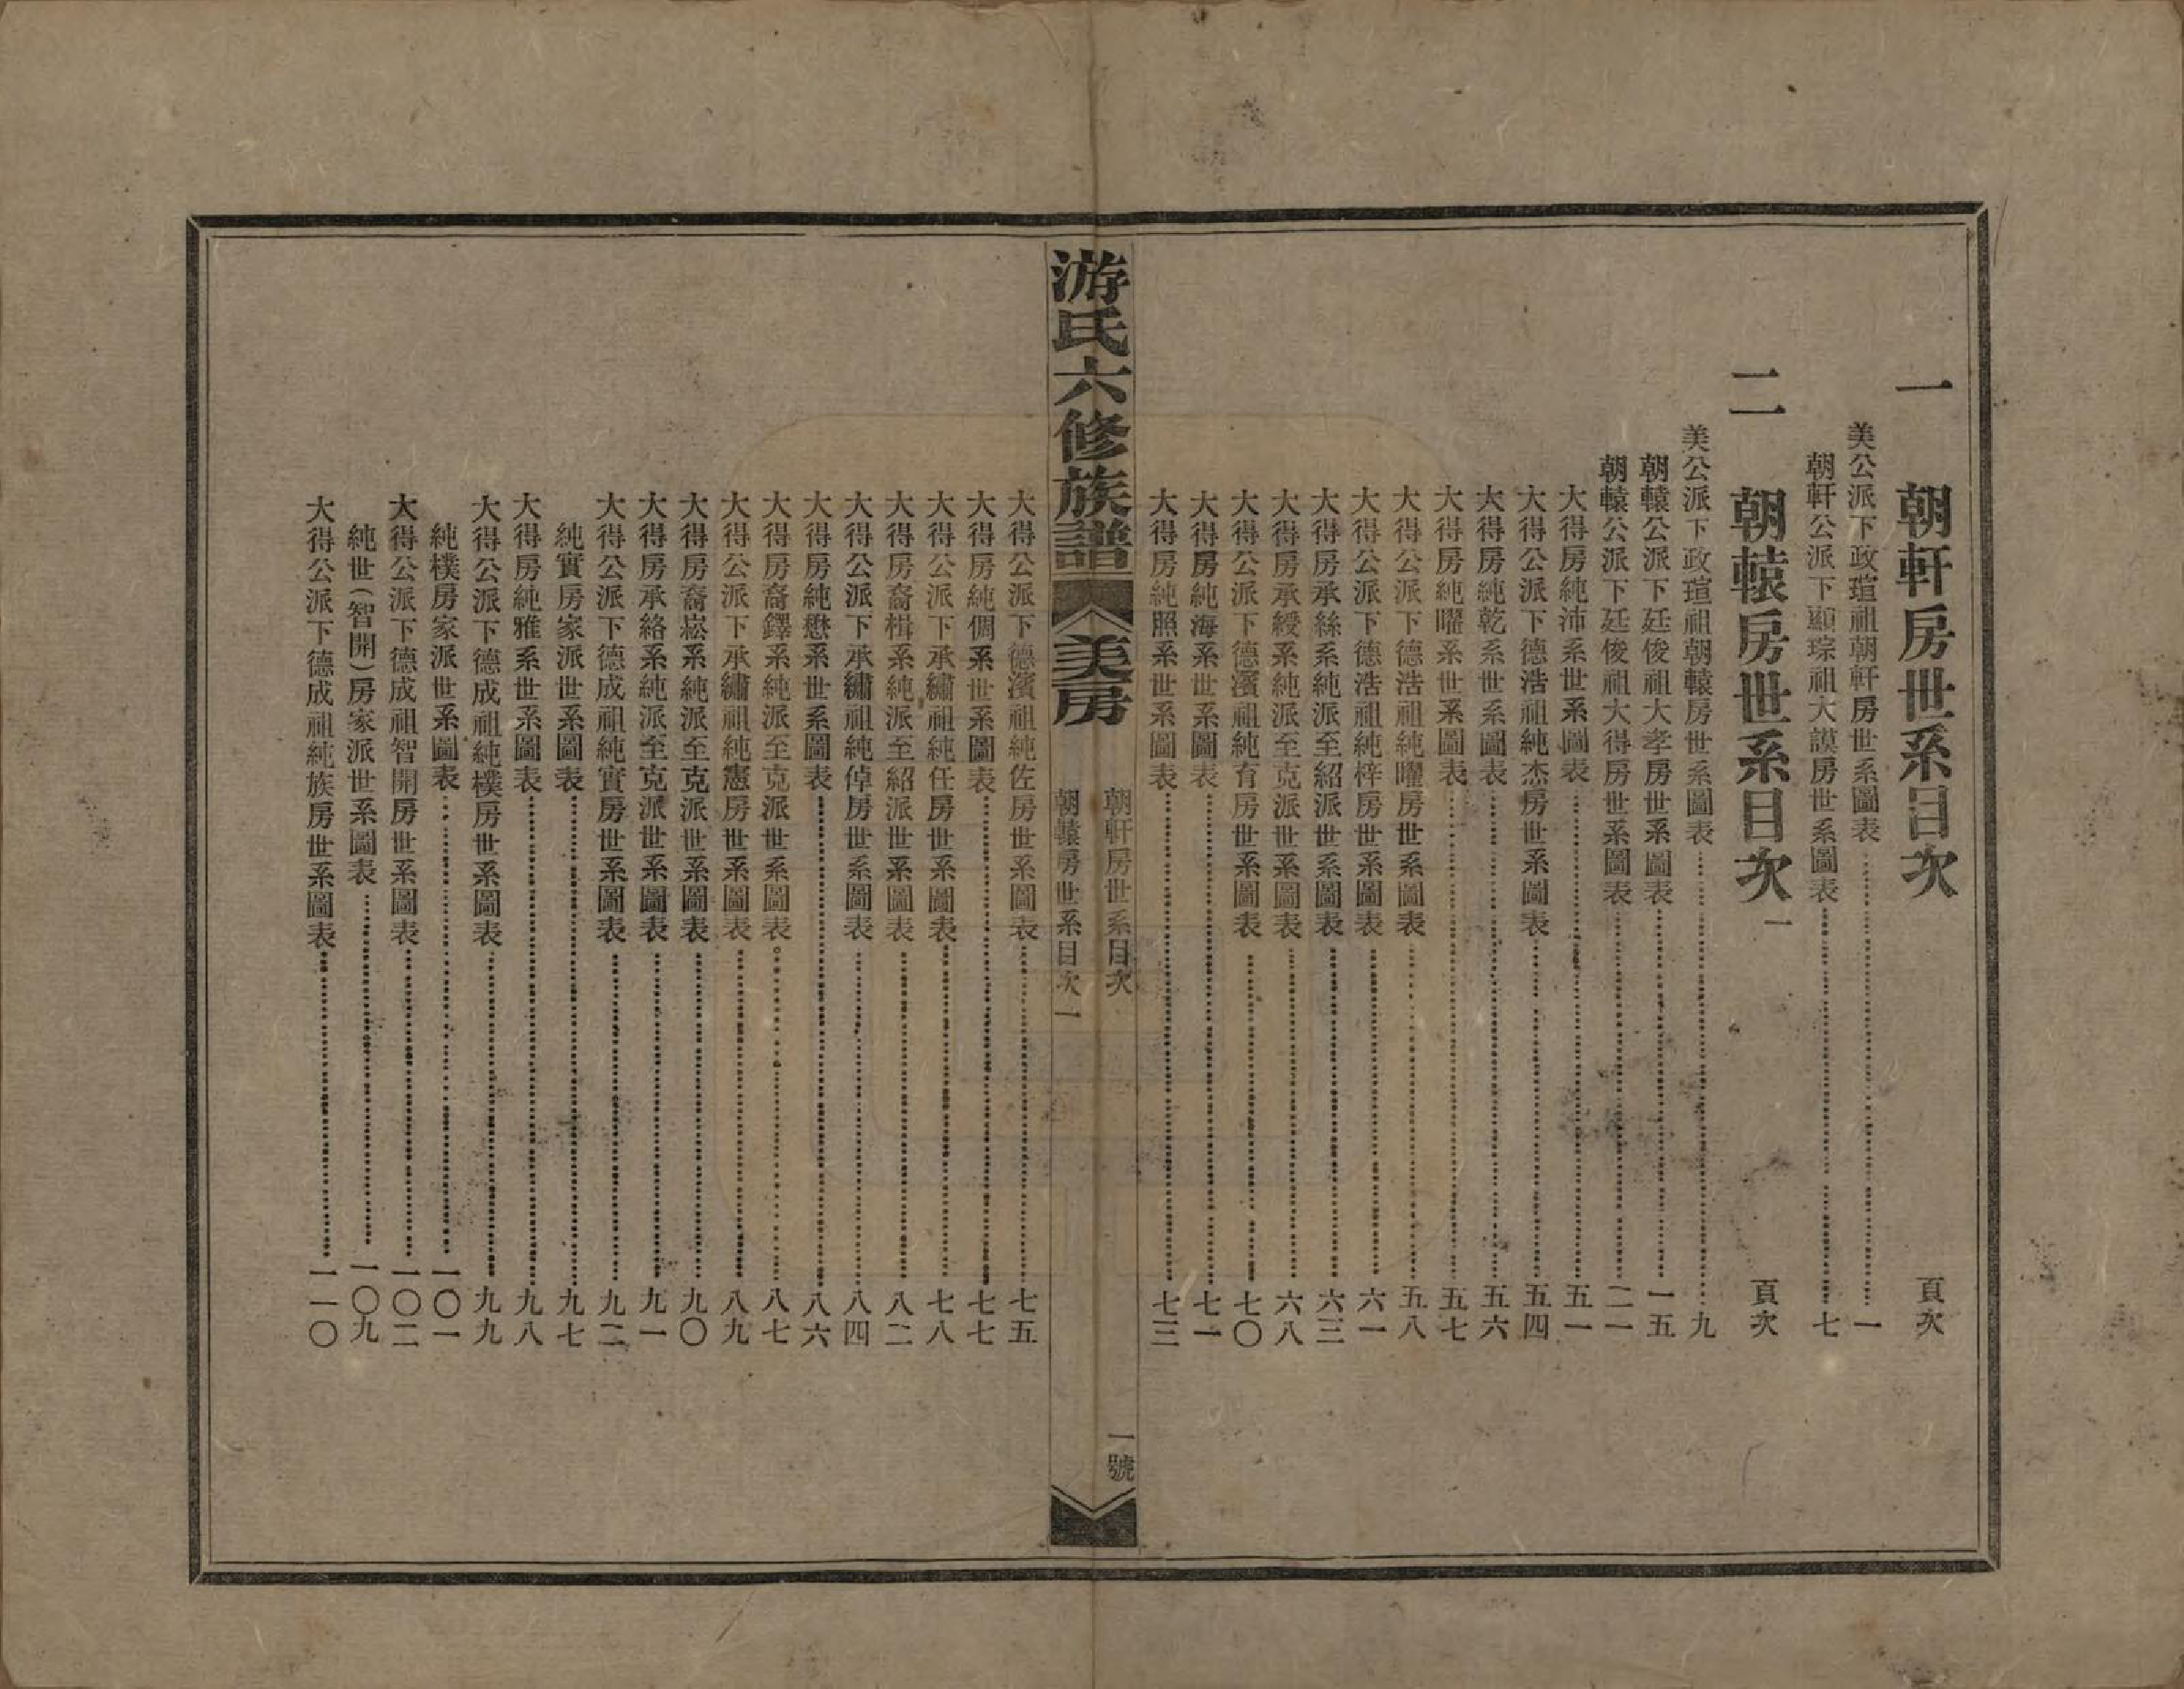 一　朝軒房世系目次　頁次
美公派下政瑄祖朝軒房世系圖表……一
朝軒公派下顯琮祖大謨房世系圖表……七
二　朝轅房世系目次一　頁次
美公派下政瑄祖朝轅房世系圖表……九
朝轅公派下廷俊祖大孝房世系圖表……一五
朝轅公派下廷俊祖大得房世系圖表……二一
大得房純沛系世系圖表……五一
大得公派下德浩祖純杰房世系圖表……五四
大得房純乾系世系圖表……五六
大得房純曜系世系圖表……五七
大得公派下德浩祖純曜房世系圖表……五八
大得公派下德浩祖純梓房世系圖表……六一
大得房承絲系純派至紹派世系圖表……六三
大得房承綬系純派至克派世系圖表……六八
大得公派下德濱祖純有房世系圖表……七〇
大得房純海系世系圖表……七一
大得房純照系世系圖表……七三
游氏六修族譜　美房　朝軒房世系目次　一號
朝轅房世系目次一
大得公派下德濱祖純佐房世系圖表……七五
大得房純倜系世系圖表……七七
大得公派下承繡祖純任房世系圖表……七八
大得房裔楫系純派至紹派世系圖表……八二
大得公派下承繡祖純倬房世系圖表……八四
大得房純懋系世系圖表……八六
大得房裔鐸系純派至克派世系圖表……八七
大得公派下承繡祖純憲房世系圖表……八九
大得房裔崧系純派至克派世系圖表……九〇
大得房承絡系純派至克派世系圖表……九一
大得公派下德成祖純實房世系圖表……九二
純實房家派世系圖表……九七
大得房純雅系世系圖表……九八
大得公派下德成祖純樸房世系圖表……九九
純樸房家派世系圖表……一〇一
大得公派下德成祖智開房世系圖表……一〇二
純世（智開）房家派世系圖表……一〇九
大得公派下德成祖純族房世系圖表……一一〇